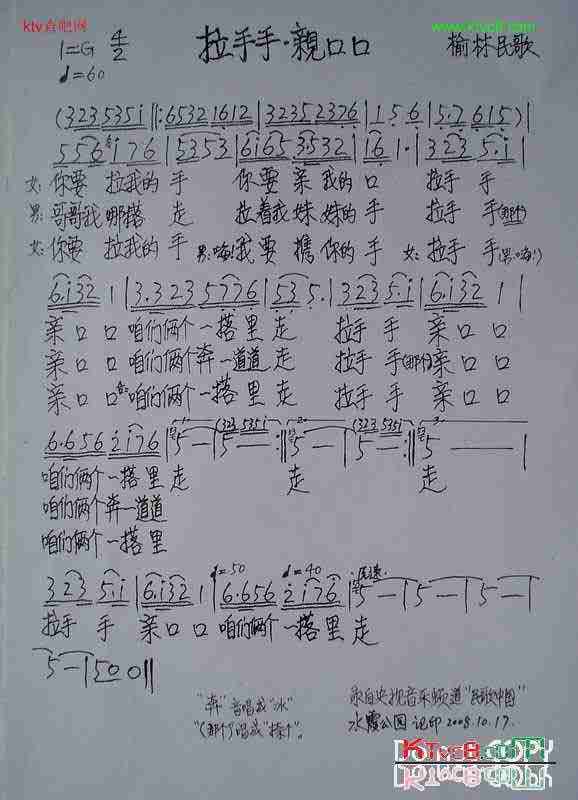 ktv直吧网
www.ktvc8.com
1=G 4/2
拉手手·親口口
榆林民歌
♩=60
(323535i||:65321612|32352376|1 5 6|5.7 615)|
556i76|5353|6i653532|16 1·|323 5.i|
女:你要 拉我的 手 你要 亲我的口 拉手 手
男:哥哥我哪搭 走 拉着我妹妹的手 拉手 手(那个)
女:你要 拉我的 手 男:(嗨!)我要 攜你的手 女:拉手 手(男:嗨!)
6.i32 1|3.323 5776|53 5.|323 5i|6.i32 1|
亲口口咱们俩个一搭里走 拉手 手 亲口口
亲口口咱们俩个奔一道道走 拉手 手(那个)亲口口
亲口口 合:咱们俩个一搭里走 拉手 手 亲口口
6.656 2i76|5—|5—:||5—|5—:||5——|
(323 535i (323 535i
咱们俩个一搭里走 走 走
咱们俩个奔一道道
咱们俩个一搭里
♩=50 ♩=40
323 5.i|6.i32 1|6.656 2i76|5—|5—|5—|
拉手 手 亲口口 咱们俩个一搭里走
5—|50 0||
"奔"音唱成"水"
录自央视音乐频道"民歌中国"
水霞公园 记印 2008.10.17.
KTvc8.com
DON'T COPY